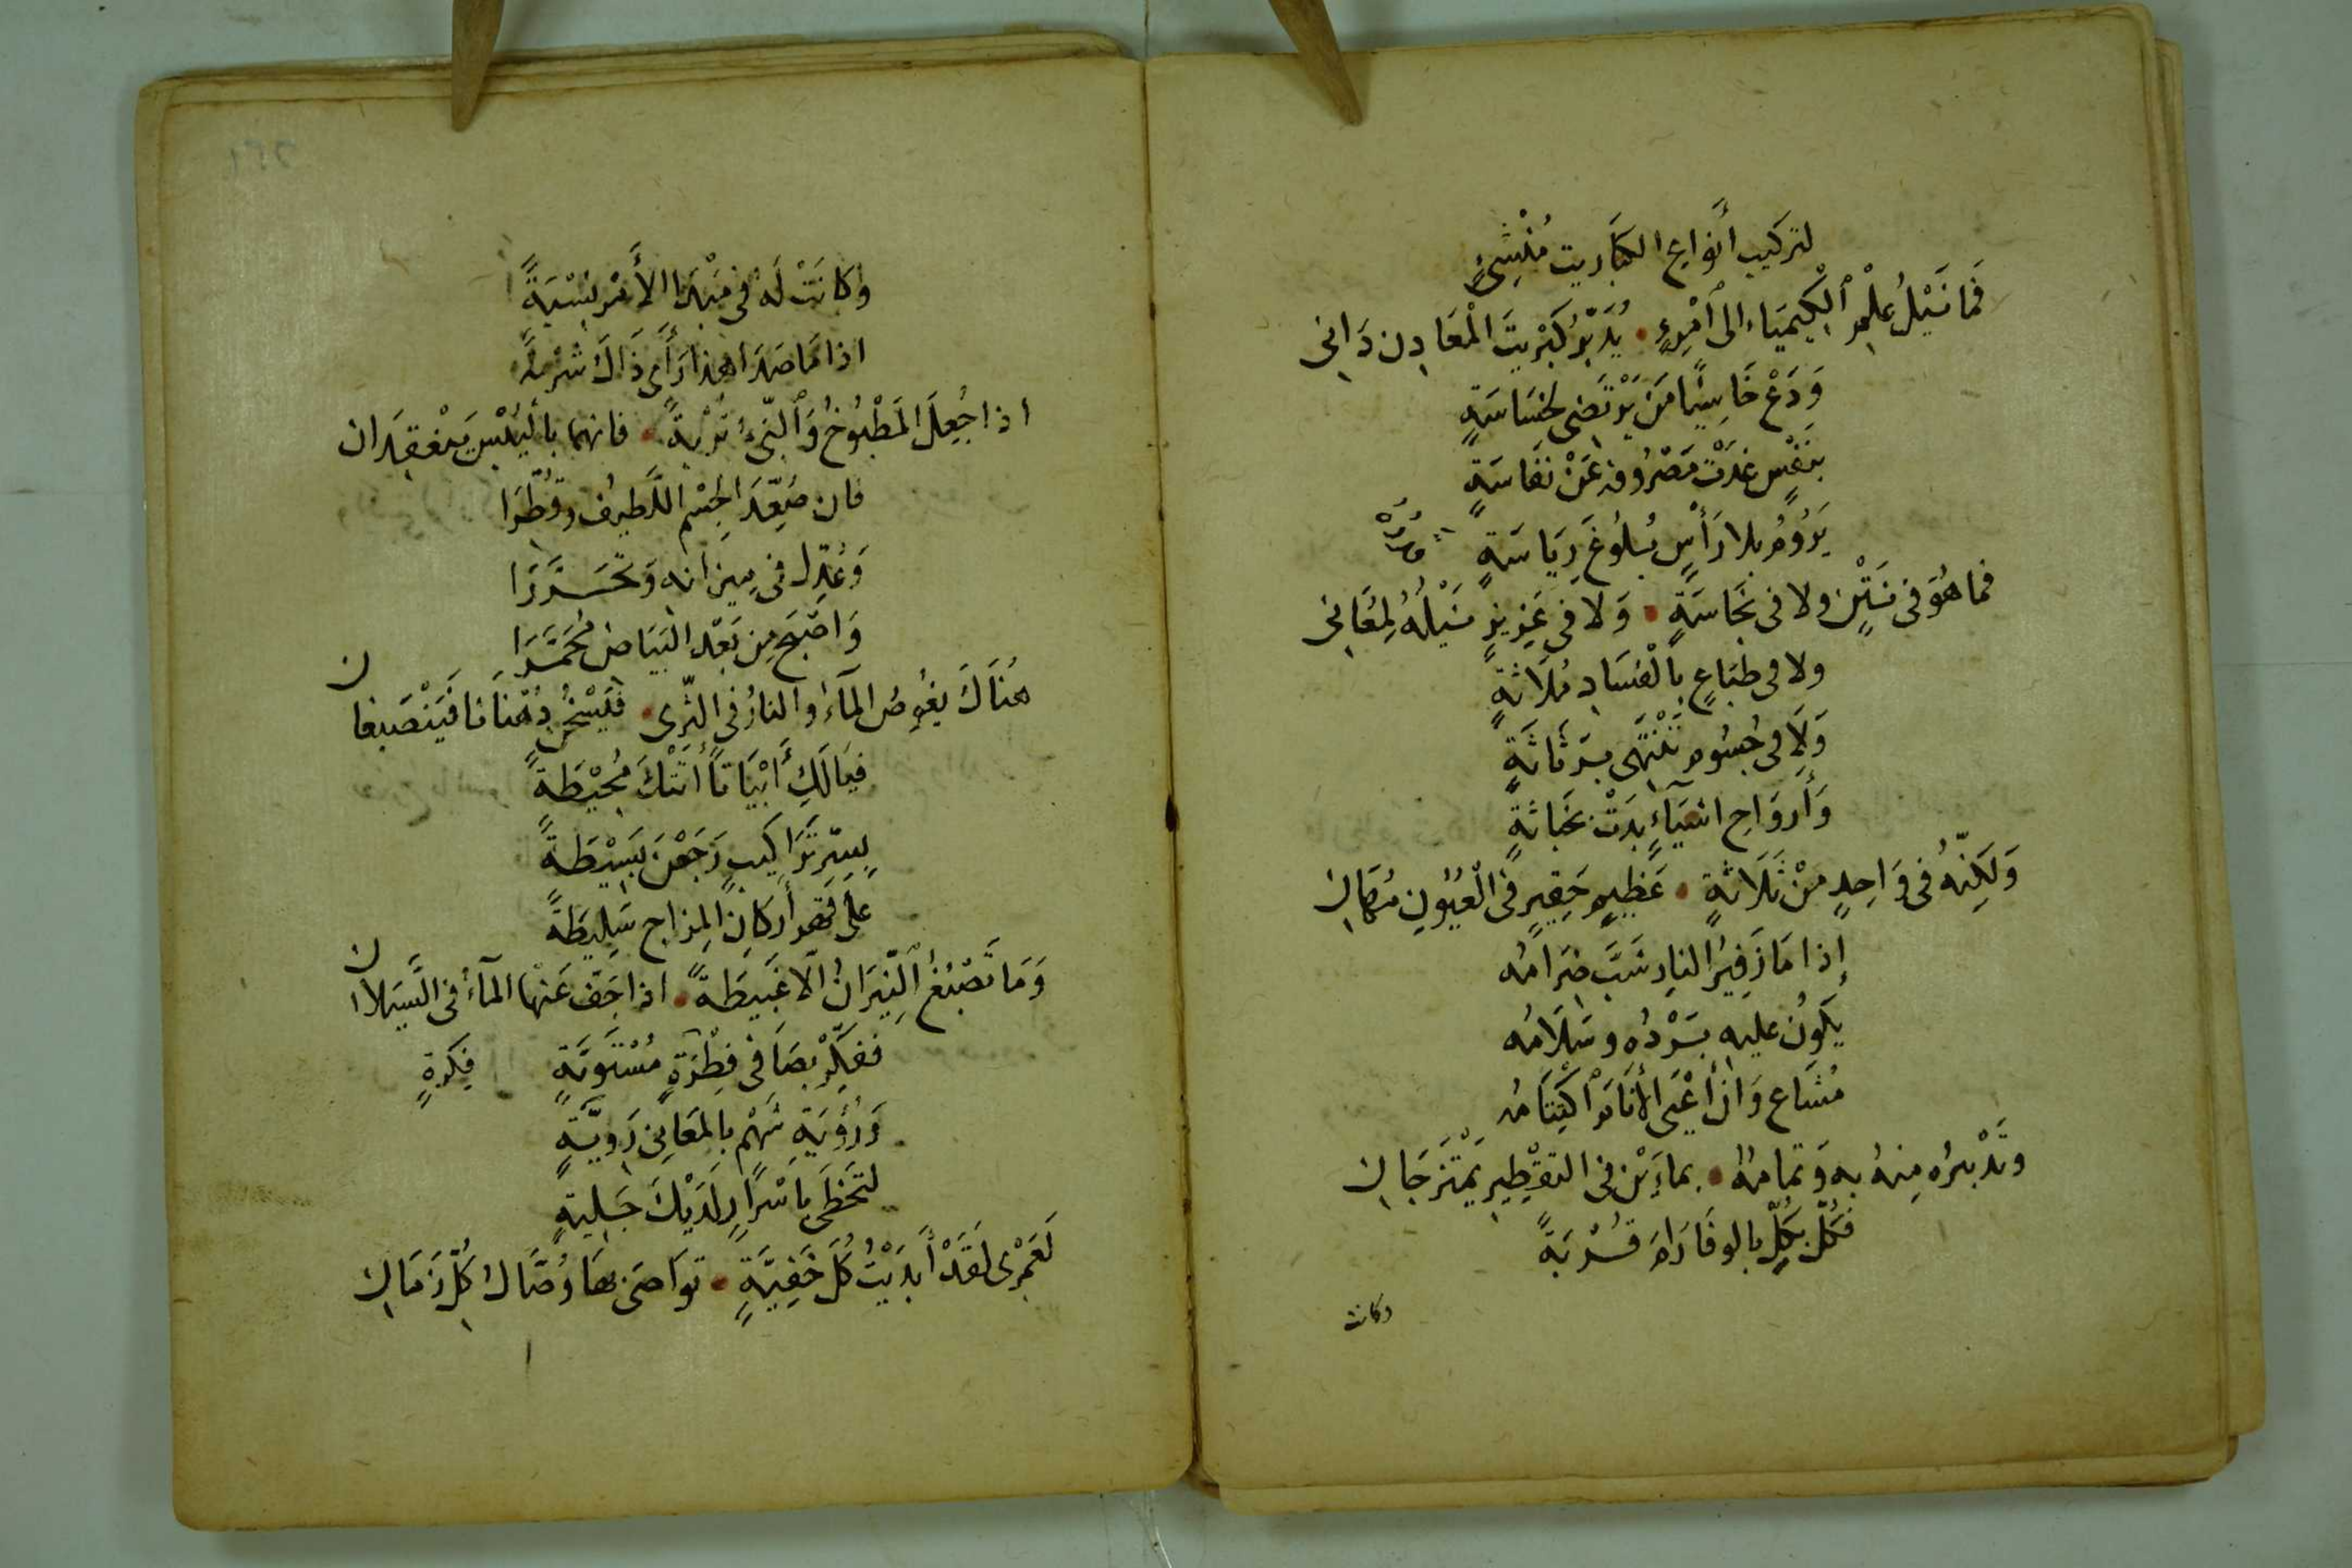 لتركيب أنواع الكباريت مُنْشِئٍ
فَمَا نَيْلُ عِلْمِ ٱلْكِيمِيَاء الى ٱمْرِءٍ • يُدَبِّرُ كَبْرِيتَ الْمَعَادِن دَانِى
وَدَعْ خَاسِئًا مَنْ يَرْتَضِى لخسَاسَةٍ
بنَفْسٍ غدَتْ مَصْرُوفة عَنْ نَفَاسَةٍ
يَرُومُ بلا رَأْسٍ بُلُوغَ رِيَاسَةٍ
فما هُوَ فى نَتْنٍ ولا فى نجَاسَةٍ • وَلا فى عَزِيزٍ نَيْلُهُ لِمُعَانِى
ولا فى طبَاعٍ بِالْفسَادِ مُلَاثةٍ
وَلَا فى جُسُومٍ تَنْتَهِى برَثَاثَةٍ
وَأَروَاحِ اشيَآءٍ بدَتْ بخَباثةٍ
وَلَكِنّهُ فى وَاحِدٍ مِنْ ثَلَاثةٍ • عَظِيمٍ حَقِيرٍ فى الْعُيُونِ مُهَانِ
إذا مَا زَفِيرُ النارِ شَبَّ ضرَامُه
يَكُونُ عليه بَرْدُه وسَلَامُه
مُشَاع وَانْ أَعْيَى الأنَامَ اكْتِتَامُه
وتَدْبيرُه مِنهُ به وَتمامُهُ • بماءَيْن فى التقْطِيرِ يَمْتَزجَانِ
فكُلٌّ بكُلٍّ بالوفَا رَامَ قُرْبَةً
وكانت
وكانَتْ لَه فى مَبْدَا الأَمْر نِسْبَةً
اذا مَا صَدَا هذا رَأَى ذَاكَ شرْبَةً
اذا جُعِلَ المَطْبُوخُ وَٱلنِّىءُ تُرْبةً • فانهما باليُبْسِ يَنْعَقِدَان
فان صُعِّدَ الجِسْم اللَّطِيف وقُطِّرَا
وَعُدِّل فى مِيزانه وَتَحَرَّرَا
وَاصْبَحَ مِن بَعْد البَيَاضِ مُحَمَّرَا
هُنَاكَ يغُوصُ المآءُ والنارُ فى الثّرى • فَيَسْخُن دُهْنَانَا فَيَنْصَبغان
فيَا لَكِ أَبْيَاتًا أتَتْكَ مُحِيْطَةً
بِسِرّ تَرَاكِيبٍ رَجَعْنَ بَسِيْطَةً
على فَهْمِ أَركَانِ المِزاجِ سَلِيطَةً
وَمَا تَصْبُغُ ٱلنِّيرَانُ الّا غَبِيطَةً • اذا جَفّ عَنْهَا المآءُ فى السَّيَلان
ففكِّرْ بصَافى فِطْرَةٍ مُسْتَوِيّةٍ فِكرَةٍ
وَرُؤيَةِ شَهْمٍ بالمَعَانِى رَوِيَّةٍ
لتَحْظَى باَسْرَارٍ لَدَيْكَ جَلِيةٍ
لَعَمْرِى لَقَدْ أَبدَيْتُ كُلَّ خَفِيَّةٍ • توَاصَى بهَا وُصَّاكُ كلّ زَمَانِ